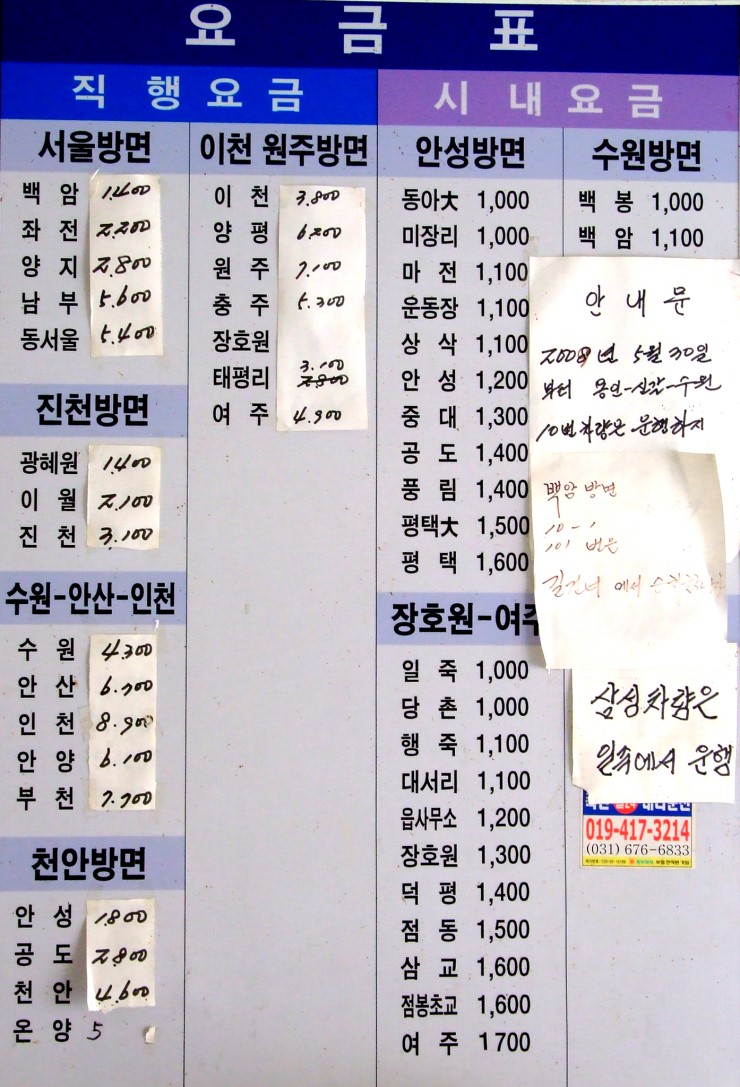 요금표
직행요금
서울방면
백암 1.400
좌전 2.200
양지 2.800
남부 5.600
동서울 5.400
진천방면
광혜원 1400
이월 2.100
진천 3.100
수원-안산-인천
수원 4.300
안산 6.700
인천 8.900
안양 6.100
부천 7.700
천안방면
안성 1.800
공도 2.800
천안 4.600
온양 5
이천 원주방면
이천 3.800
양평 6.200
원주 7.100
충주 5.300
장호원
3.100
태평리 2.800
여주 4.900
시내요금
안성방면
동아大 1,000
미장리 1,000
마전 1,100
운동장 1,100
상삭 1,100
안성 1,200
중대 1,300
공도 1,400
풍림 1,400
평택大 1,500
평택 1,600
장호원-여주
일죽 1,000
당촌 1,000
행죽 1,100
대서리 1,100
읍사무소 1,200
장호원 1,300
덕평 1,400
점동 1,500
삼교 1,600
점봉초교 1,600
여주 1700
수원방면
백봉 1,000
백암 1,100
안내문
2008년 5월 30일
부터 용인-신갈-수원
10번차량은 운행하지
백암방면
10-1
101 번은
길건너 에서
삼성차량은
일죽에서 운행
019-417-3214
(031) 676-6833